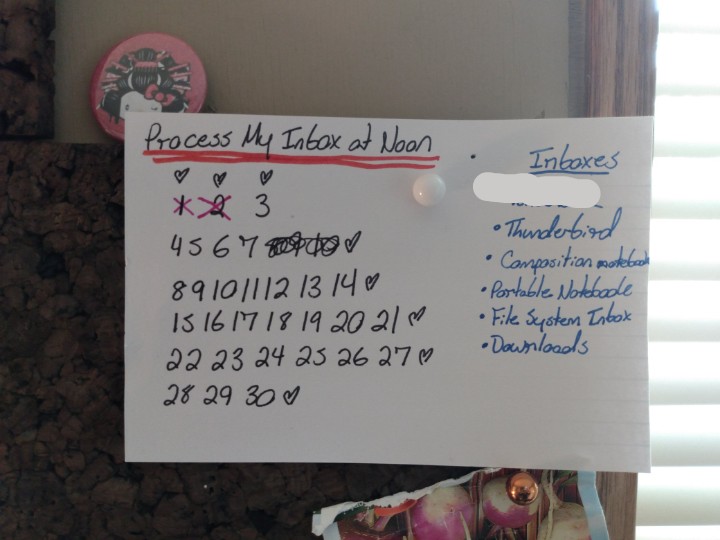 Process My Inbox at Noon
♡ ♡ ♡
1 2 3
4 5 6 7 ♡
8 9 10 11 12 13 14 ♡
15 16 17 18 19 20 21 ♡
22 23 24 25 26 27 ♡
28 29 30 ♡
Inboxes
• Thunderbird
• Composition notebook
• Portable Notebook
• File System Inbox
• Downloads